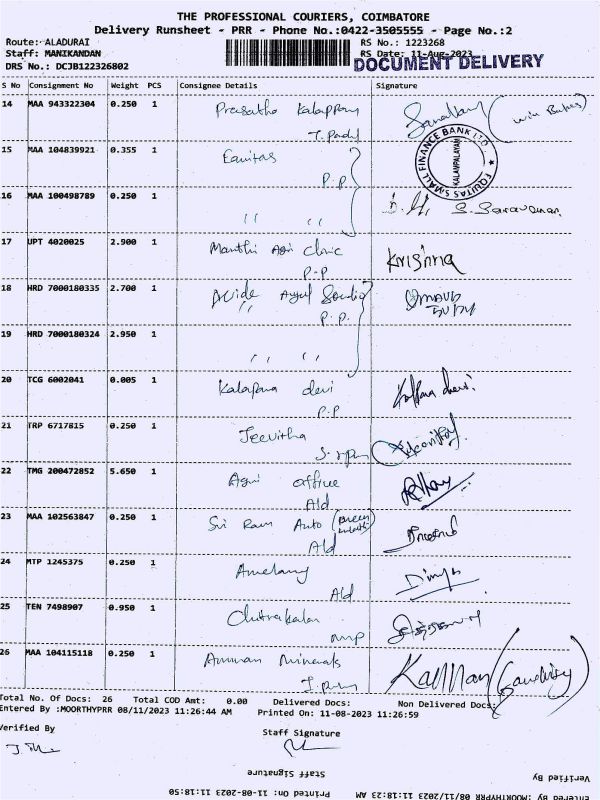 THE PROFESSIONAL COURIERS, COIMBATORE
Delivery Runsheet - PRR - Phone No.:0422-3505555 - Page No.:2
Route: ALADURAI RS No.: 1223268
Staff: MANIKANDAN RS Date: 11-Aug-2023
DRS No.: DCJB122326802 DOCUMENT DELIVERY
S No Consignment No Weight PCS Consignee Details Signature
14 MAA 943322304 0.250 1
15 MAA 104839921 0.355 1 Equitas
P.P
EQUITAS SMALL FINANCE BANK LTD
KALAMPALAYAM
16 MAA 100498789 0.250 1 " " S. Saravanan
17 UPT 4020025 2.900 1 Manthi Agri Clinic Krishna
P.P
18 HRD 7000180335 2.700 1
P.P.
19 HRD 7000180324 2.950 1 " "
20 TCG 6002041 0.005 1 Kalapana devi
P.P
21 TRP 6717815 0.250 1 Jeevitha
22 TMG 200472852 5.650 1 Agri office
Ald
23 MAA 102563847 0.250 1 Sri Ram Auto
Ald
24 MTP 1245375 0.250 1
Ald
25 TEN 7498907 0.950 1 Chitrakala
26 MAA 104115118 0.250 1 Amman Minerals Kannan
Total No. Of Docs: 26 Total COD Amt: 0.00 Delivered Docs: Non Delivered Docs:
Entered By :MOORTHYPRR 08/11/2023 11:26:44 AM Printed On: 11-08-2023 11:26:59
Verified By Staff Signature
Staff Signature
Verified By
Entered By :MOORTHYPRR 08/11/2023 11:18:23 AM Printed On: 11-08-2023 11:18:50